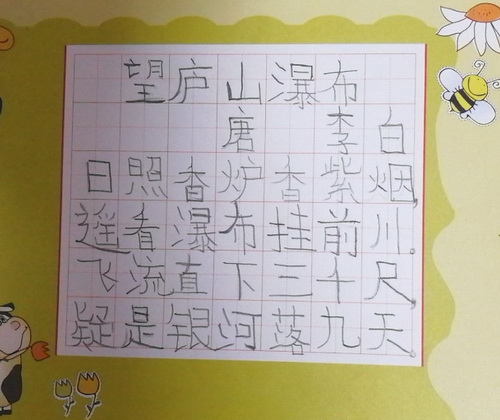 望庐山瀑布
唐 李白
日照香炉香紫烟，
遥看瀑布挂前川。
飞流直下三千尺，
疑是银河落九天。